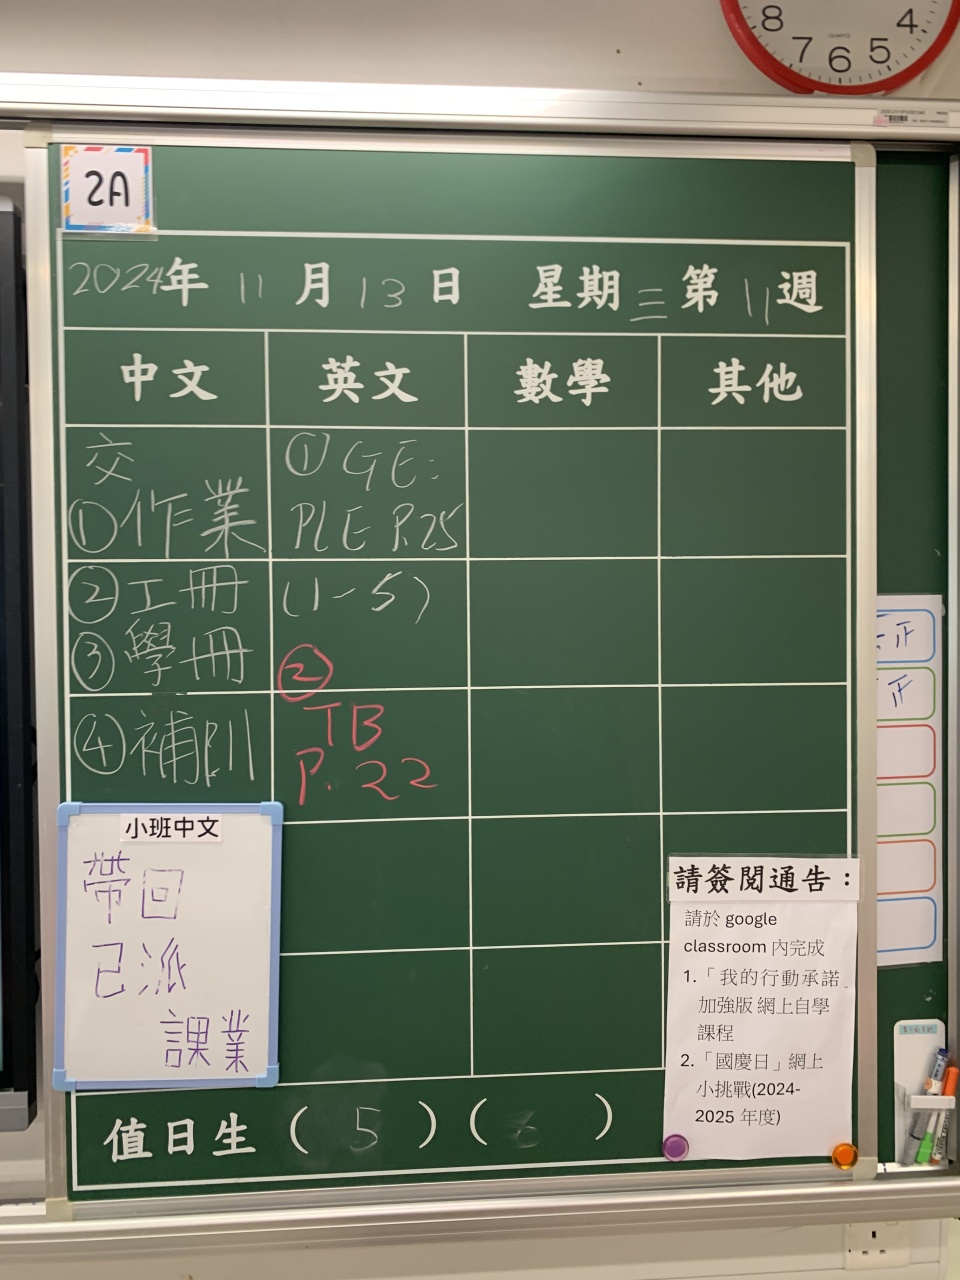 8 7 6 5 4
QUARTZ
2A
2024年 11 月 13 日 星期 三 第 11 週
中文 英文 數學 其他
交
①作業
②工冊
③學冊
④補訓
① GE:
PLE P.25
(1-5)
②
TB
P. 22
小班中文
帶回
已派
課業
請簽閱通告：
請於 google
classroom 內完成
1.「我的行動承諾
加強版 網上自學
課程
2.「國慶日」網上
小挑戰(2024-
2025 年度)
值日生 ( 5 ) ( 6 )
正
正